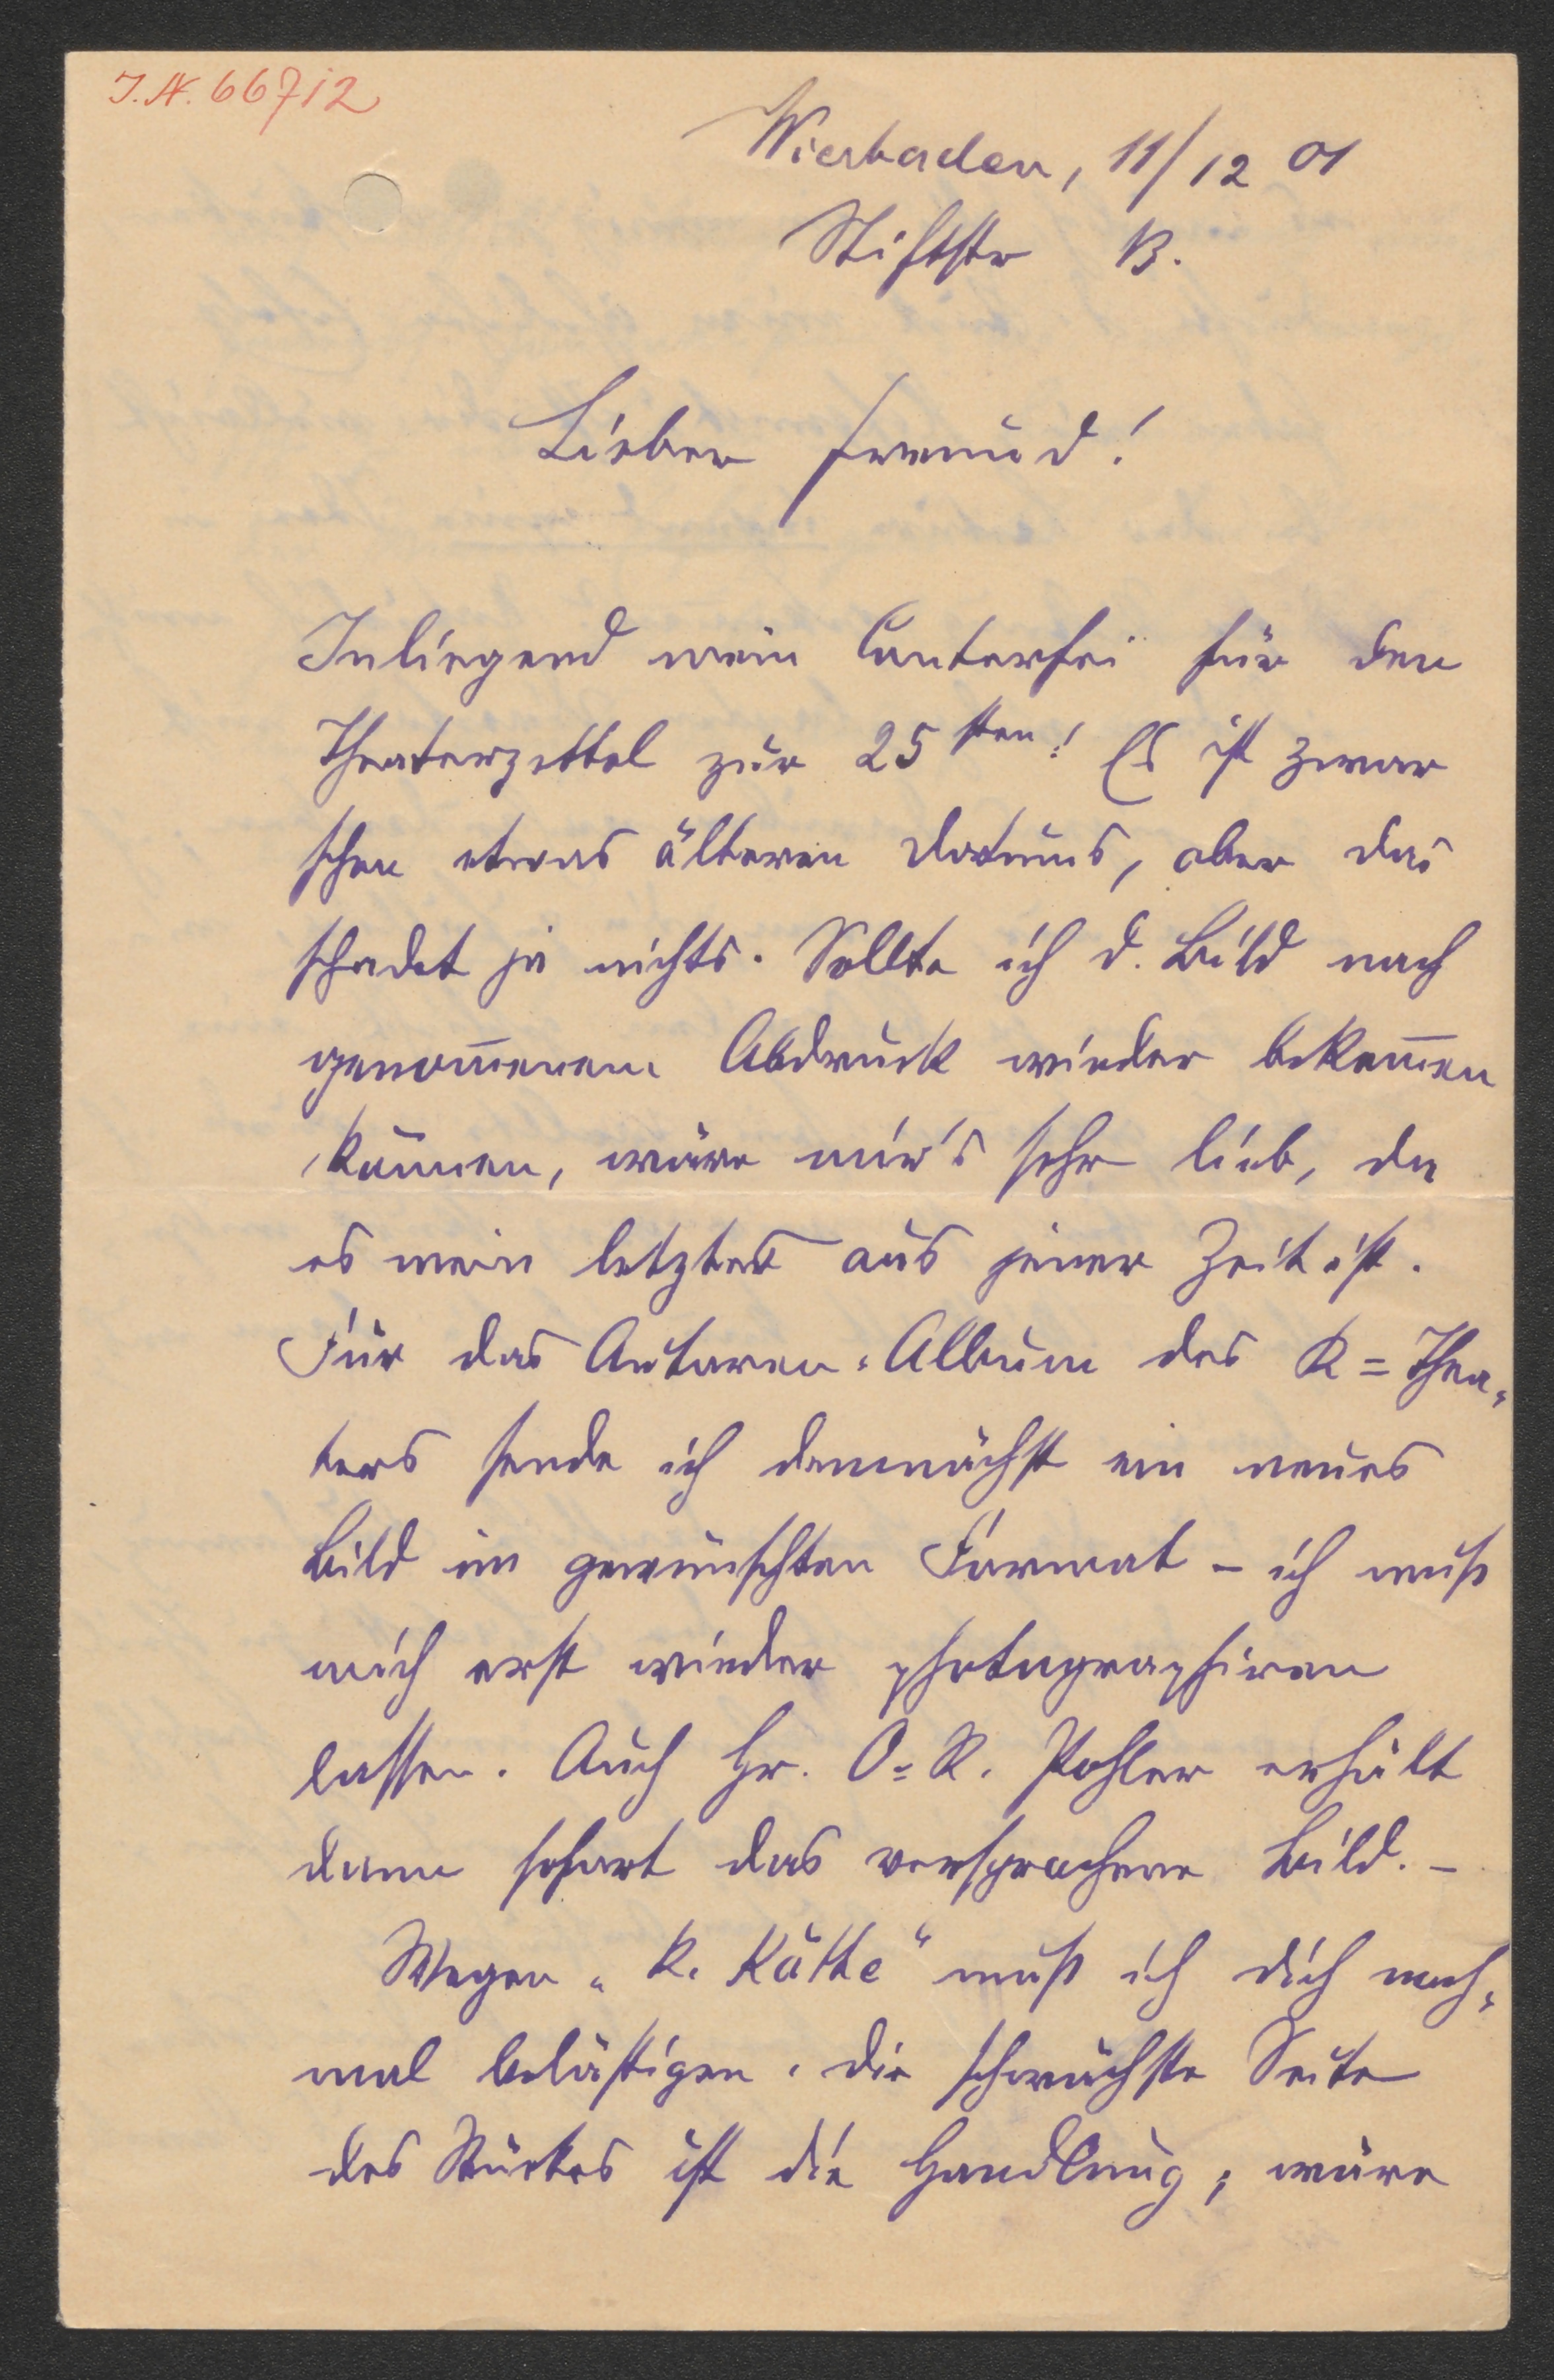 J.N. 66712
Wiesbaden, 11/12 01
Stiftstr 13.
Lieber Freund!
Inliegend mein Conterfei für den
Theaterzettel zur 25sten! Es ist zwar
schon etwas älteren Datums, aber das
schadet ja nichts. Sollte ich d. Bild nach
genom̅enem Abdruck wieder bekom̅en
können, wäre mir's sehr lieb, da
es mein letztes aus jener Zeit ist.
Für das Autoren-Album des R=Thea-
ters sende ich demnächst ein neues
Bild im gewünschten Format – ich muß
mich erst wieder photographiren
lassen. Auch Hr. O=R. Pohler erhält
dann sofort das versprochene Bild. –
Wegen „R. Käthe“ muß ich dich noch-
mal belästigen. Die schwächste Seite
des Stückes ist die Handlung; wäre